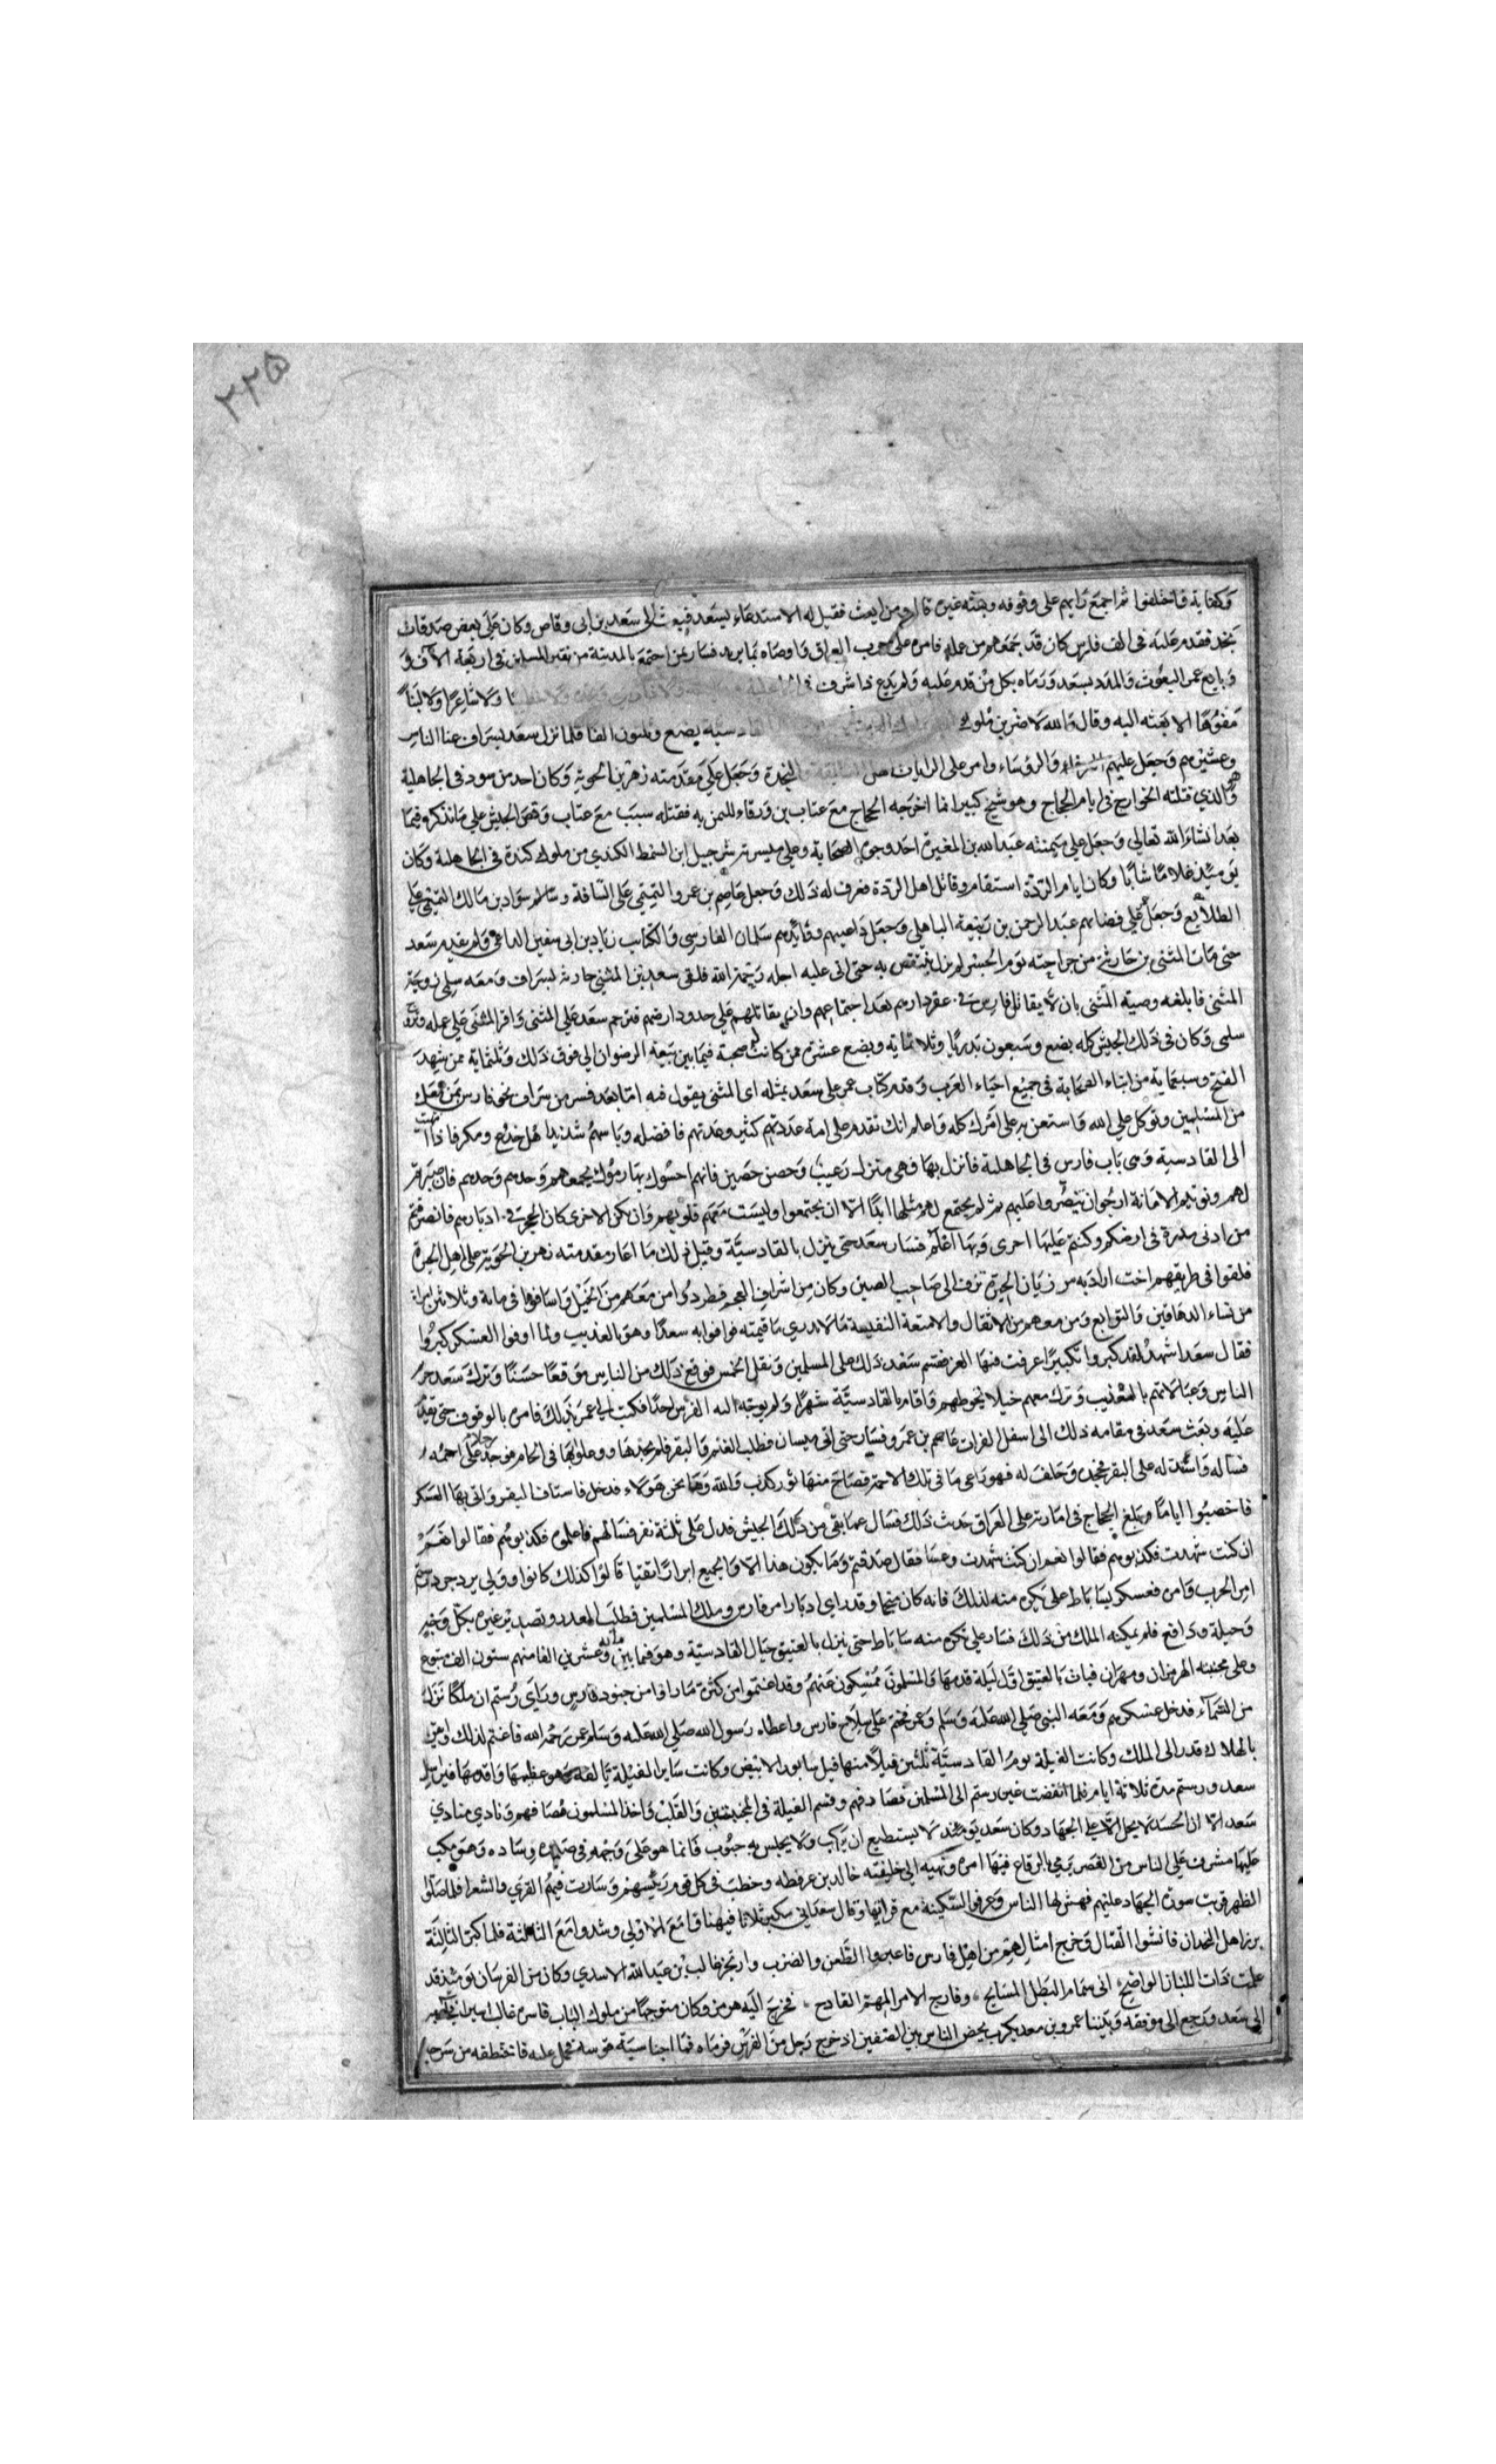 ٢٢٥
وكفاية فاختلفوا ثم اجمع رايهم على وقوفه وبعثه غيره قال ومن ابعث فقيل له الاستدعاء بسعد فبعث الى سعد بن ابى وقاص وكان على بعض صدقات
نجد فقدم عليه فى الف فارس كان قد جمعهم من عمله فامره على حرب العراق واوصاه بما يريد فسار بمن اجتمع بالمدينة من نفير المسلمين فى اربعة الآف و
وتابع عمر البعوث والمدد لسعد ورماه بكل من قدم عليه ولم يدع ذا شرف ولا شاعرا ولا
مفوها الا بعثه اليه وقال والله لاضربن ملوك القادسية بضع وثلثون الفا فلما نزل سعد بسراف عبا الناس
وعشيرهم وجعل عليهم والرؤساء وامر على الرايات من النجدة وجعل على مقدمته زهر بن الحوية وكان احد من سود فى الجاهلية
والذي قتلته الخوارج فى ايام الحجاج وهو شيخ كبير انما اخرجه الحجاج مع عتاب بن ورقاء للتيمن به فقتله سبب مع عتاب وقص الجيش على ما نذكره فيما
بعد انشاء الله تعالى وجعل على ميمنته عبد الله بن المغيرة احد وجوه الصحابة وعلى ميسرته شرحبيل ابن السمط الكندي من ملوك كندة فى الجاهلية وكان
يومئذ غلاما شابا وكان ايام الردة استقام وقاتل اهل الردة فعرف له ذلك وجعل عاصم بن عمرو التميمي على الساقة وسالم سواد بن مالك التميمي على
الطلايع وجعل على قضائهم عبد الرحمن بن ربيعة الباهلي وجعل داعيهم وقائدهم سلمان الفارسى والكتاب زياد بن ابى سفين الداعى ولم يقدم سعد
حتى مات المثنى بن حارثة من جراحته يوم الجسر لم يزل ينتقص به حتى اتى عليه اجله رحمة الله فلقى سعد بن المثنى حارثه لبسراف ومعه سلمى زوجة
المثنى فابلغه وصية المثنى بان لا يقاتل فارس فى عقر دارهم بعد اجتماعهم وان يقاتلهم على حدود ارضهم فترحم سعد على المثنى واقر المثنى على عمله
سلمى وكان فى ذلك الجيش كله بضع وسبعون بدريا وثلاثمايه وبضع عشرة ممن كانت له صحبة فيما بين بيعة الرضوان الى فوق ذلك وثلثماية ممن شهد
الفتح وسبعماية من ابناء الصحابة فى جميع احياء العرب وقدم كتاب عمر على سعد بمثله اى المثنى يقول فيه اما بعد فسر من سراف نحو فارس بمن معك
من المسلمين وتوكل على الله واستعن به على امرك كله واعلم انك تقدم على امة عددهم كثير وعدتهم فاضله وباسهم شديد اهل خدع ومكر فاذا انتهيت
الى القادسية وهى باب فارس فى الجاهلية فانزل بها فهى منزل رغيب وحصن حصين فانهم احسوك بها رموك بجمعهم وحدهم وحدهم فان صبرتم
لهم ونويتم الامانة ارجوا ان تنصروا عليهم ثم لم يجتمع لهم مثلها ابدا الا ان يجتمعوا وليست معهم قلوبهم وان يكن الاخرى كان الحجر فى ادباركم فانصرفتم
من ادنى مدرة فى ارضكم وكنتم عليها احرى وبها اعلم فسار سعد حتى نزل بالقادسية وقبل ذلك ما اغار مقدمته زهر بن الحوية على اهل الحيرة
فلقوا فى طريقهم اخت ازادبه مرزبان الحيرة تزف الى صاحب الصين وكان من اشراف العجم فطردوا من معهم من الخيل واسافوها فى مائة وثلاثين امراة
من نساء الدهاقين والتوابع ومن معهم من الاثقال والامتعة النفيسة ما لا ندري ما قيمته فوافوا به سعدا وهو بالعذيب ولما اوفوا العسكر كبروا
فقال سعد اشهد لقد كبروا تكبيرا عرفت فيها العز فقسم سعد ذلك على المسلمين ونفل الخمس فوقع ذلك من الناس موقعا حسنا وترك سعد
الناس وعيالاتهم بالعذيب وترك معهم خيلا تحوطهم واقام بالقادسية شهرا ولم يوجه اليه الفرس احدا فكتب الى عمر بذلك فامره بالوقوف حتى
عليه وبعث سعد فى مقامه ذلك الى اسفل الفرات عاصم بن عمر وفسار حتى اتى ميسان فطلب الغنم والبقر فلم يجدها ووعلوا بها فى الجام فوجد رجلا على اجمه
فساله واشدته له على البقر فجحد وحلف له فهو راعى ما فى تلك الاجمة فصاح منها ثور كذب والله وها نحن هولاء فدخل فاستاق البقر واتى بها العسكر
فاخصبوا اياما وبلغ الحجاج فى امارته على العراق حدث ذلك فسال عما بقى من ذلك الجيش فدل على ثلثة نفر فسالهم فاعلموه فكذبوهم فقالوا نعم
ان كنت شهدت فكذبوهم فقالوا نعم ان كنت شهدت وعسا فقال صدقتم وما يكون هذا الا والجميع ابرارا اتقيا قالوا كذلك كانوا وولى يزدجرد رستم
امر الحرب وامره فعسكر بساباط على بكره منه لذلك فانه كان منجما وقد راى ادبار امر فارس وملك المسلمين فطلب المعدد وتصدير غيره بكل وجه
وحيلة ودافع فلم يمكنه الملك من ذلك فسار على بكره منه ساباط حتى نزل بالعتيق حيال القادسية وهو فيما بين مائة وعشرين الفا منهم ستون الف متبوع
وعلى مجنبته الهرمزان ومهران فبات بالعتيق اول ليلة قدمها والمسلمون ممسكون عنهم وقد اغتموا من كثرة ما راوا من جنود فارس وراى رستم ان ملكا نزل
من السماء فدخل عسكرهم ومعه النبى صلى الله عليه وسلم وعمر فختم على سلاح فارس واعطاه رسول الله صلى الله عليه وسلم عمر رحمه الله فاغتم لذلك وايقن
بالهلاك قدر الى الملك وكانت الفيلة يوم القادسية ثلثين فيلا منها فيل سابور الابيض وكانت ساير الفيلة تالفه وهو عظيمها واقدمها فيراسل
سعد ورستم مدة ثلاثة ايام فلما انقضت عبر رستم الى المسلمين فصادفهم وقسم الفيلة فى المجنبتين والقلب واخذ المسلمون مصافهم ونادى منادى
سعد الا ان الحسد لا يحل الا على الجهاد وكان سعد يومئذ لا يستطيع ان يركب ولا يجلس به حبوب فانما هو على وجهه فى صدره وساده وهو مكب
عليها مشرف على الناس من القصر يرمى بالرقاع فيها امره ونهيه الى خليفته خالد بن عرفطه وخطب فى كل قوم رئيسهم وسارت فيهم القرى والشعرا فلما صلوا
الظهر قريت سورة الجهاد عليهم فهش لها الناس وعرفوا السكينة مع قراتها وقال سعد انى مكبر ثلاثا فتهيئوا مع الاولى وشدوا مع الثالثة فلما كبر الثالثة
برز اهل النجدات فانشوا القتال وخرج امثالهم من اهل فارس فاعتبروا الطعن والضرب وارتجز غالب بن عبد الله الاسدي وكان من الفرسان يومئذ قد
علمت ذات اللبنان الواضح انى سمام البطل المسايح وفارج الامر المهم القادح فخرج اليه هرمز وكان متوجها من ملوك الباب فاسره غالب
الى سعد ورجع الى موقفه وبيننا عمرو بن معديكرب يحض الناس بين الصفين اذ خرج رجل من الفرس فرماه فما اخنا سية قوسه فحمل عليه فاختطفه من سرجه